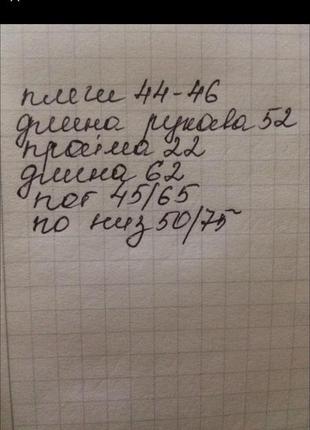 плеги 44-46
длина рукава 52
пройма 22
длина 62
пог 45/65
по низ 50/75